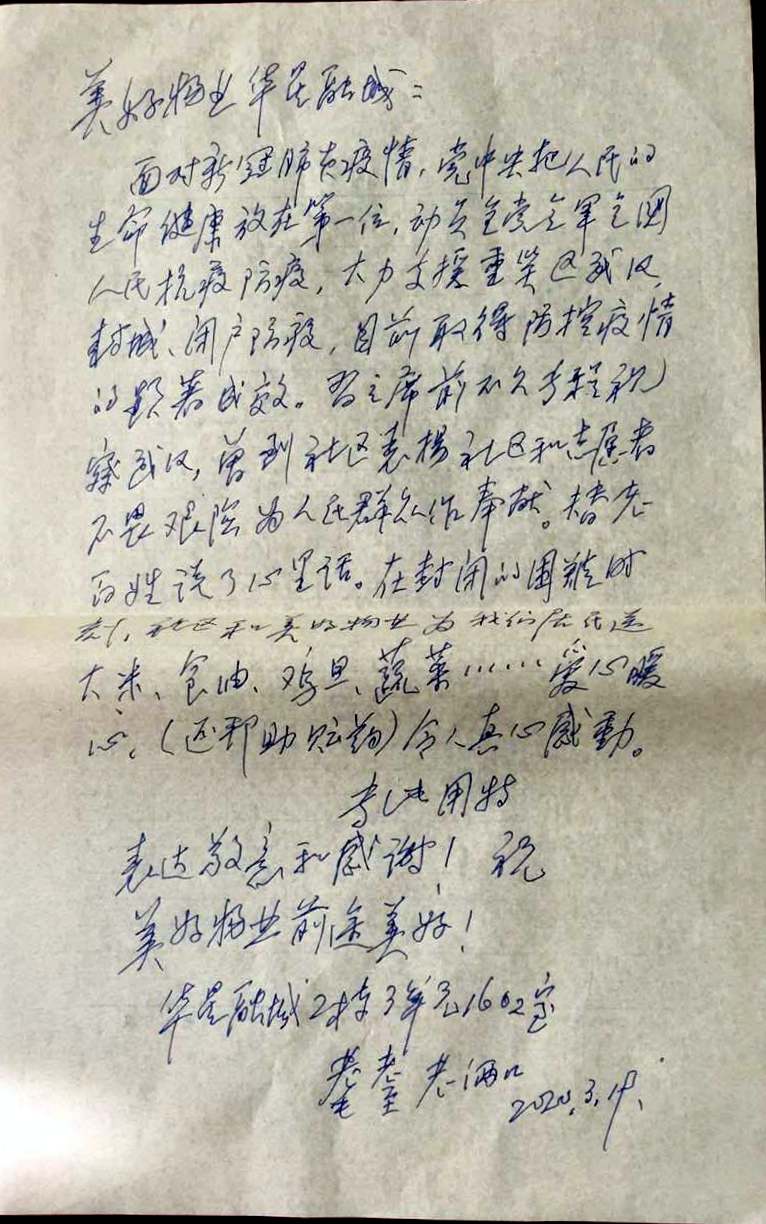 美好物业华星融城：
面对新冠肺炎疫情，党中央把人民的
生命健康放在第一位，动员全党全军全国
人民抗疫防疫，大力支援重災区武汉，
封城、闭户防疫，目前取得防控疫情
的顯著成效。習主席前不久专程视
察武汉，曾到社区表揚社区和志愿者
不畏艰险为人民群众作奉献。替老
百姓说了心里话。在封闭的困難时
刻，社区和美好物业为我们居民送
大米、食油、鸡旦、蔬菜……爱心暖
心。（还帮助买药）令人真心感動。
用特
表达敬意和感谢！祝
美好物业前途美好！
华星融城2栋3单元1602室
耄耋老俩口
2020.3.19.